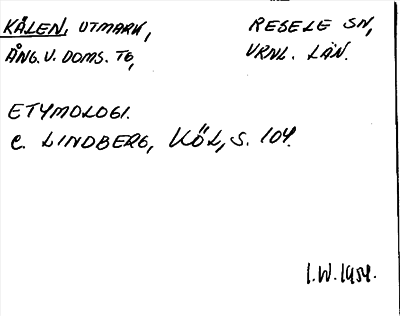 KÅLEN, UTMARK, RESELE SN,
ÅNG. V. DOMS. TG, VRNL. LÄN.
ETYMOLOGI.
C. LINDBERG, KÖL, S. 104.
I.W. 1954.